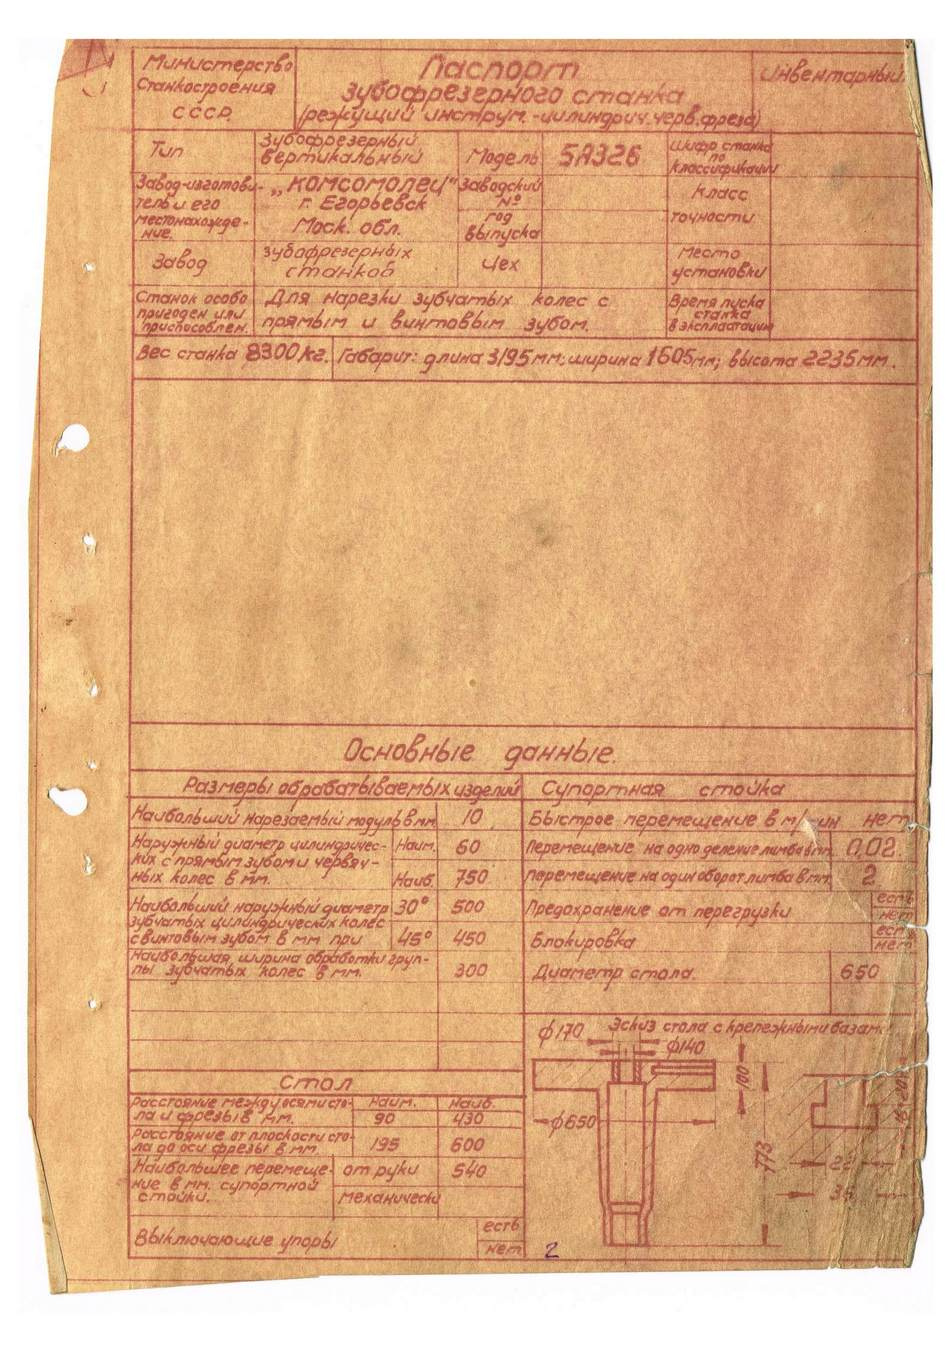 Министерство
Станкостроения
СССР.
Паспорт
зубофрезерного станка
(режущий инструм.-цилиндрич.черв.фреза)
Инвентарный
Тип
Зубофрезерный
вертикальный
Модель
5А326
Шифр станка
по
классификации
Завод-изготови-
тель и его
местонахожде-
ние.
„Комсомолец"
г. Егорьевск
Моск. обл.
Заводский
№
год
выпуска
Класс
точности
Завод
зубофрезерных
станков
Цех
Место
установки
Станок особо
пригоден или
приспособлен.
Для нарезки зубчатых колес с
прямым и винтовым зубом.
Время пуска
станка
в эксплоатацию
Вес станка 8300кг. Габарит: длина 3195мм; ширина 1605мм; высота 2235мм.
Основные данные.
Размеры обрабатываемых изделий
Наибольший нарезаемый модуль в мм 10
Наружный диаметр цилиндричес-
ких с прямым зубом и червяч-
ных колес в мм.
Наим. 60
Наиб. 750
Наибольший наружный диаметр
зубчатых цилиндрических колес
с винтовым зубом в мм при
30° 500
45° 450
Наибольшая ширина обработки груп-
пы зубчатых колес в мм. 300
Стол
Расстояние между осями сто-
ла и фрезы в мм.
Наим. Наиб.
90 430
Расстояние от плоскости сто-
ла до оси фрезы в мм. 195 600
Наибольшее перемеще-
ние в мм. супортной
стойки.
от руки 540
механически
Выключающие упоры
есть
нет
Супортная стойка
Быстрое перемещение в м/мин нет
Перемещение на одно деление лимба в мм. 0,02.
Перемещение на один оборот лимба в мм. 2
Предохранение от перегрузки
есть
нет
Блокировка
есть
нет
Диаметр стола. 650
Эскиз стола с крепежными базами
ф170
ф140
ф650
100
773
22
36
2